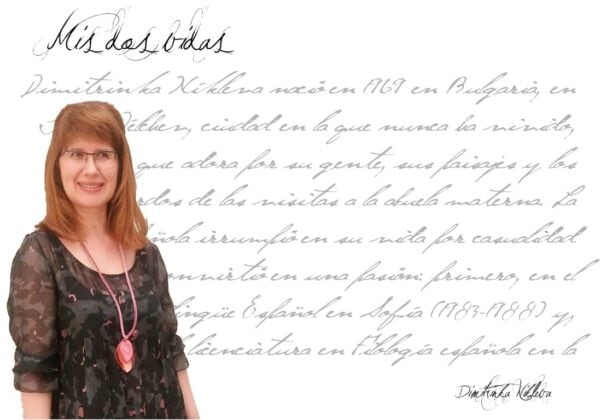 Mis dos vidas
Dimitrinka Níkleva nació en 1969 en Bulgaria, en
ciudad en la que nunca ha vivido,
que adora por su gente, sus paisajes y los
rdos de las visitas a la abuela materna. La
ñola irrumpió en su vida por casualidad
onvirtió en una pasión: primero, en el
lingüe Español en Sofía (1983-1988) y,
licenciatura en Filología española en la
Dimitrinka Níkleva